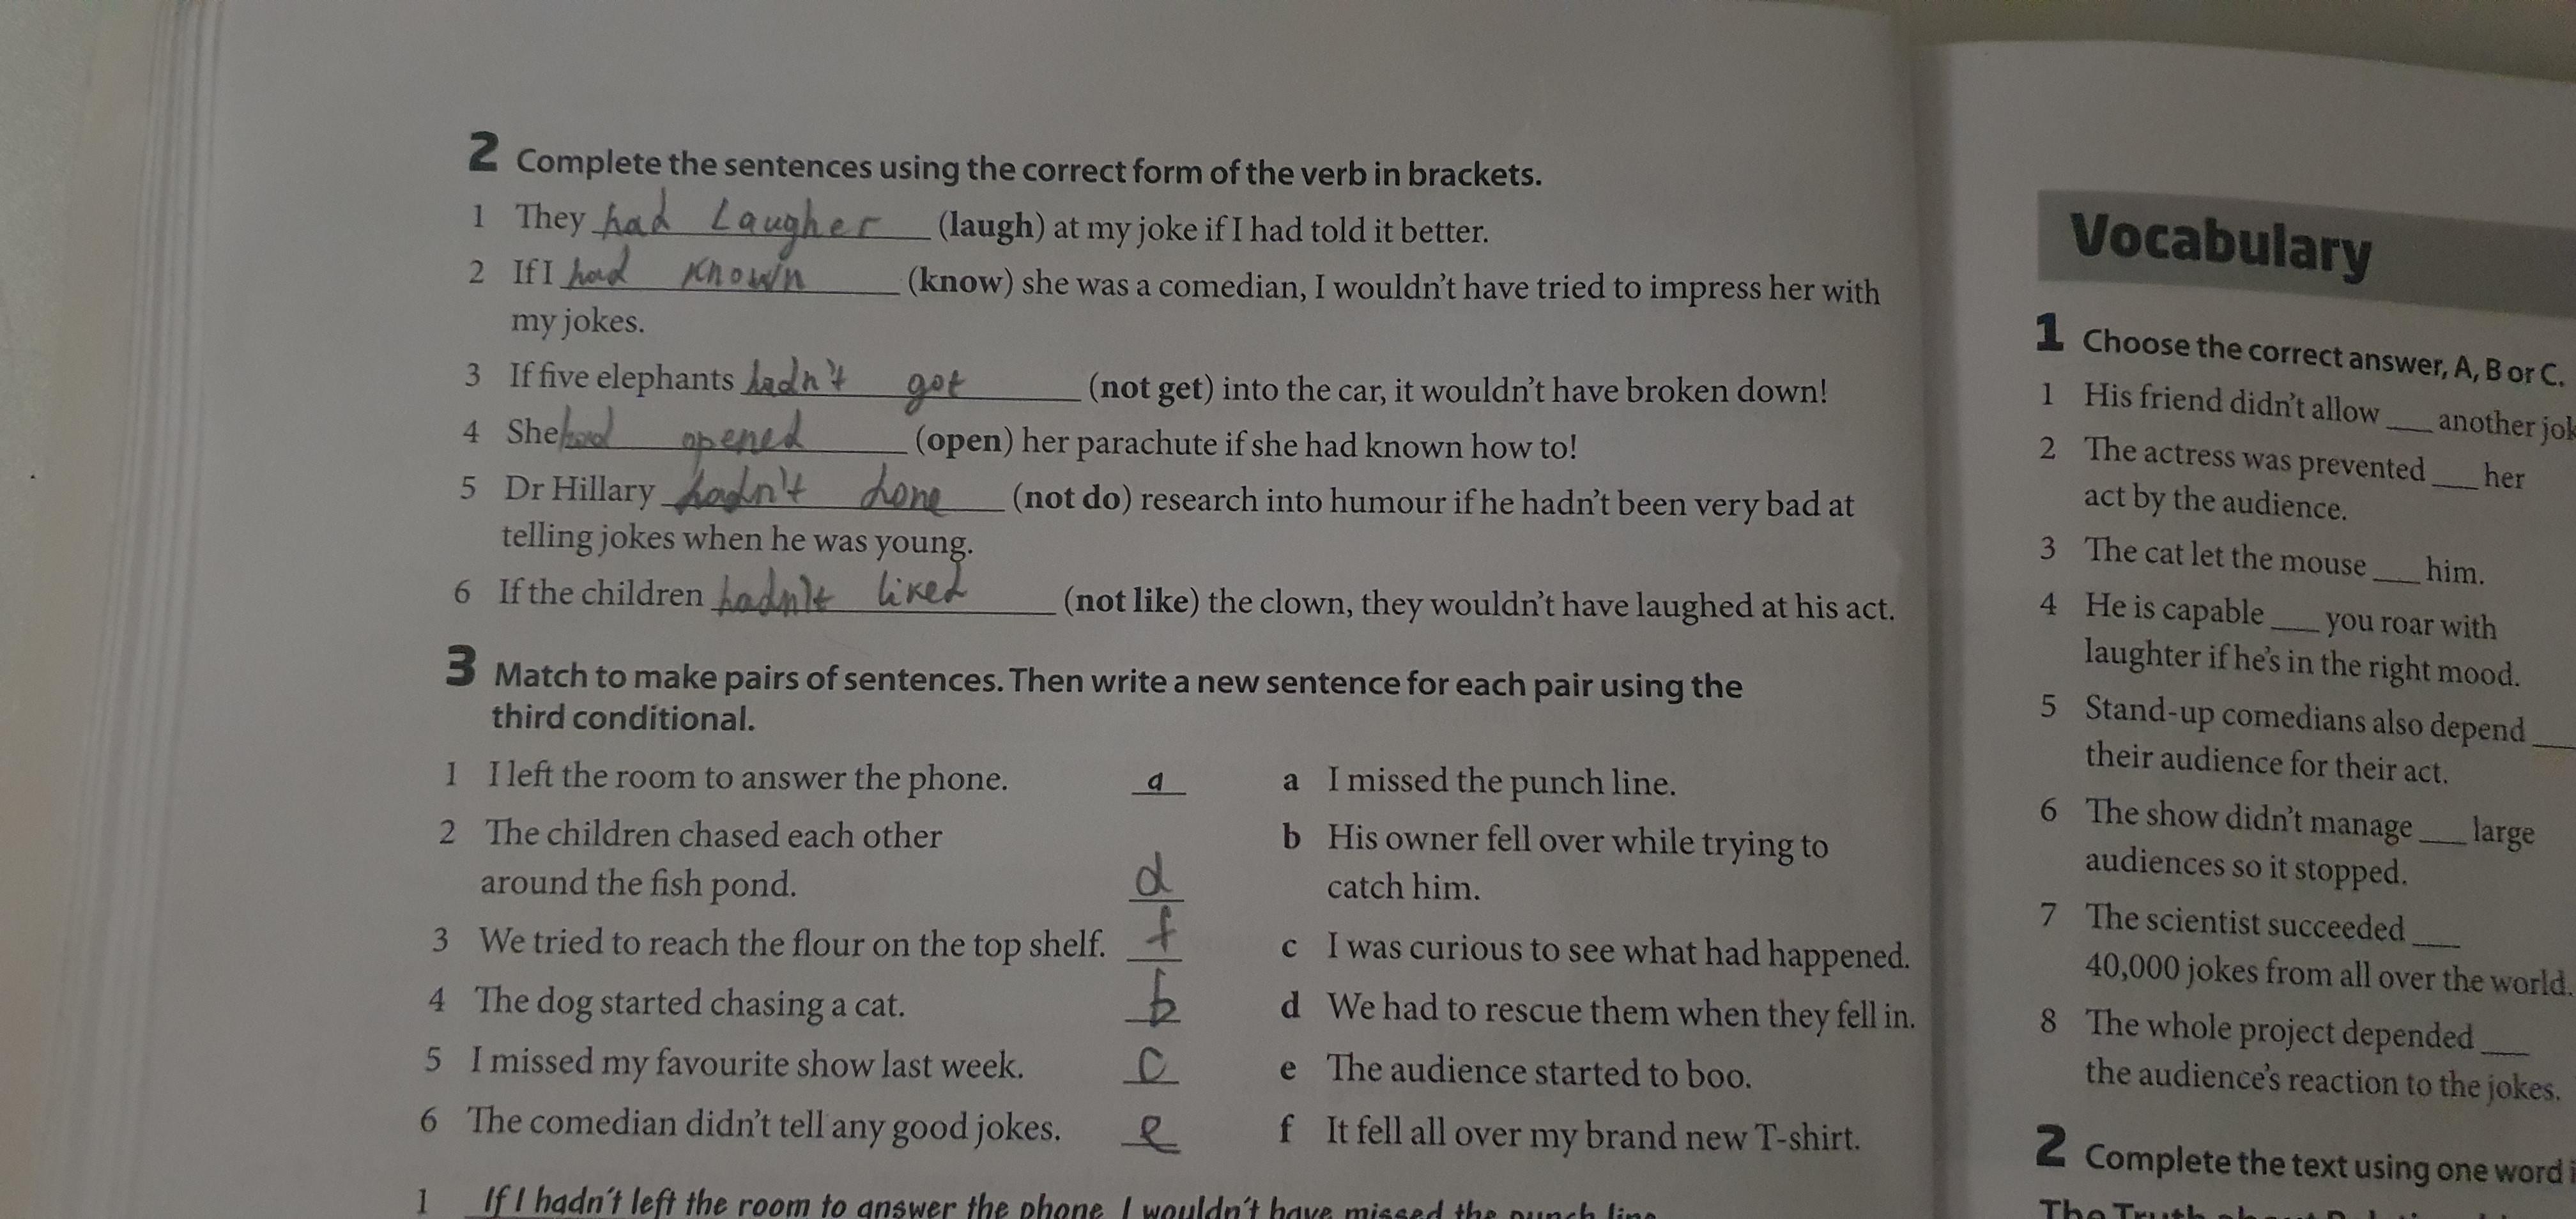 2 Complete the sentences using the correct form of the verb in brackets.
1 They had Laugher (laugh) at my joke if I had told it better.
2 If I had known (know) she was a comedian, I wouldn't have tried to impress her with
my jokes.
3 If five elephants hadn't got (not get) into the car, it wouldn't have broken down!
4 She had opened (open) her parachute if she had known how to!
5 Dr Hillary hadn't done (not do) research into humour if he hadn't been very bad at
telling jokes when he was young.
6 If the children hadn't liked (not like) the clown, they wouldn't have laughed at his act.
3 Match to make pairs of sentences. Then write a new sentence for each pair using the
third conditional.
1 I left the room to answer the phone. a
2 The children chased each other
around the fish pond. d
3 We tried to reach the flour on the top shelf. f
4 The dog started chasing a cat. b
5 I missed my favourite show last week. c
6 The comedian didn't tell any good jokes. e
a I missed the punch line.
b His owner fell over while trying to
catch him.
c I was curious to see what had happened.
d We had to rescue them when they fell in.
e The audience started to boo.
f It fell all over my brand new T-shirt.
1 If I hadn't left the room to answer the phone, I wouldn't have missed the punch line
Vocabulary
1 Choose the correct answer, A, B or C.
1 His friend didn't allow ___ another jok
2 The actress was prevented ___ her
act by the audience.
3 The cat let the mouse ___ him.
4 He is capable ___ you roar with
laughter if he's in the right mood.
5 Stand-up comedians also depend ___
their audience for their act.
6 The show didn't manage ___ large
audiences so it stopped.
7 The scientist succeeded ___
40,000 jokes from all over the world.
8 The whole project depended ___
the audience's reaction to the jokes.
2 Complete the text using one word i
The Truth about